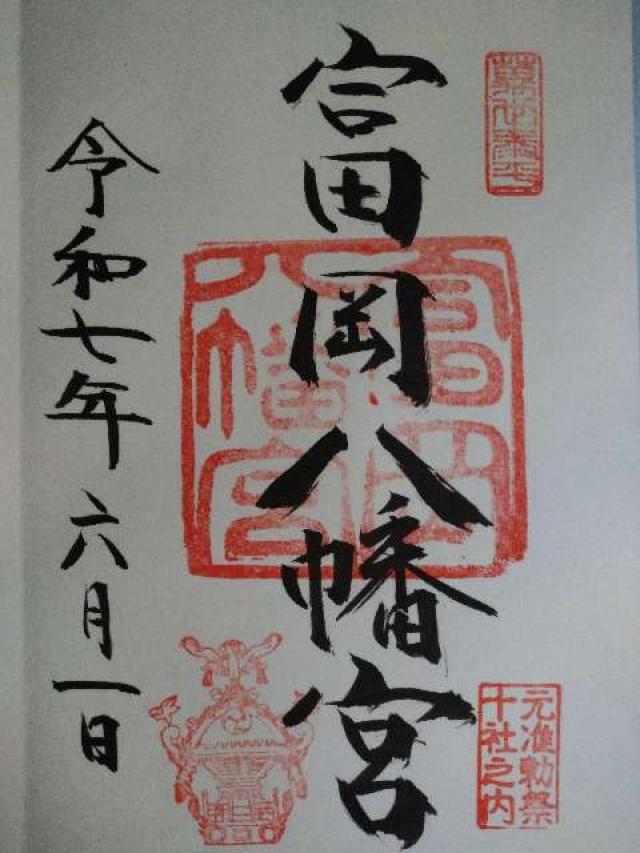 富岡八幡宮
元准勅祭
十社之内
令和七年六月一日
富岡
八幡宮